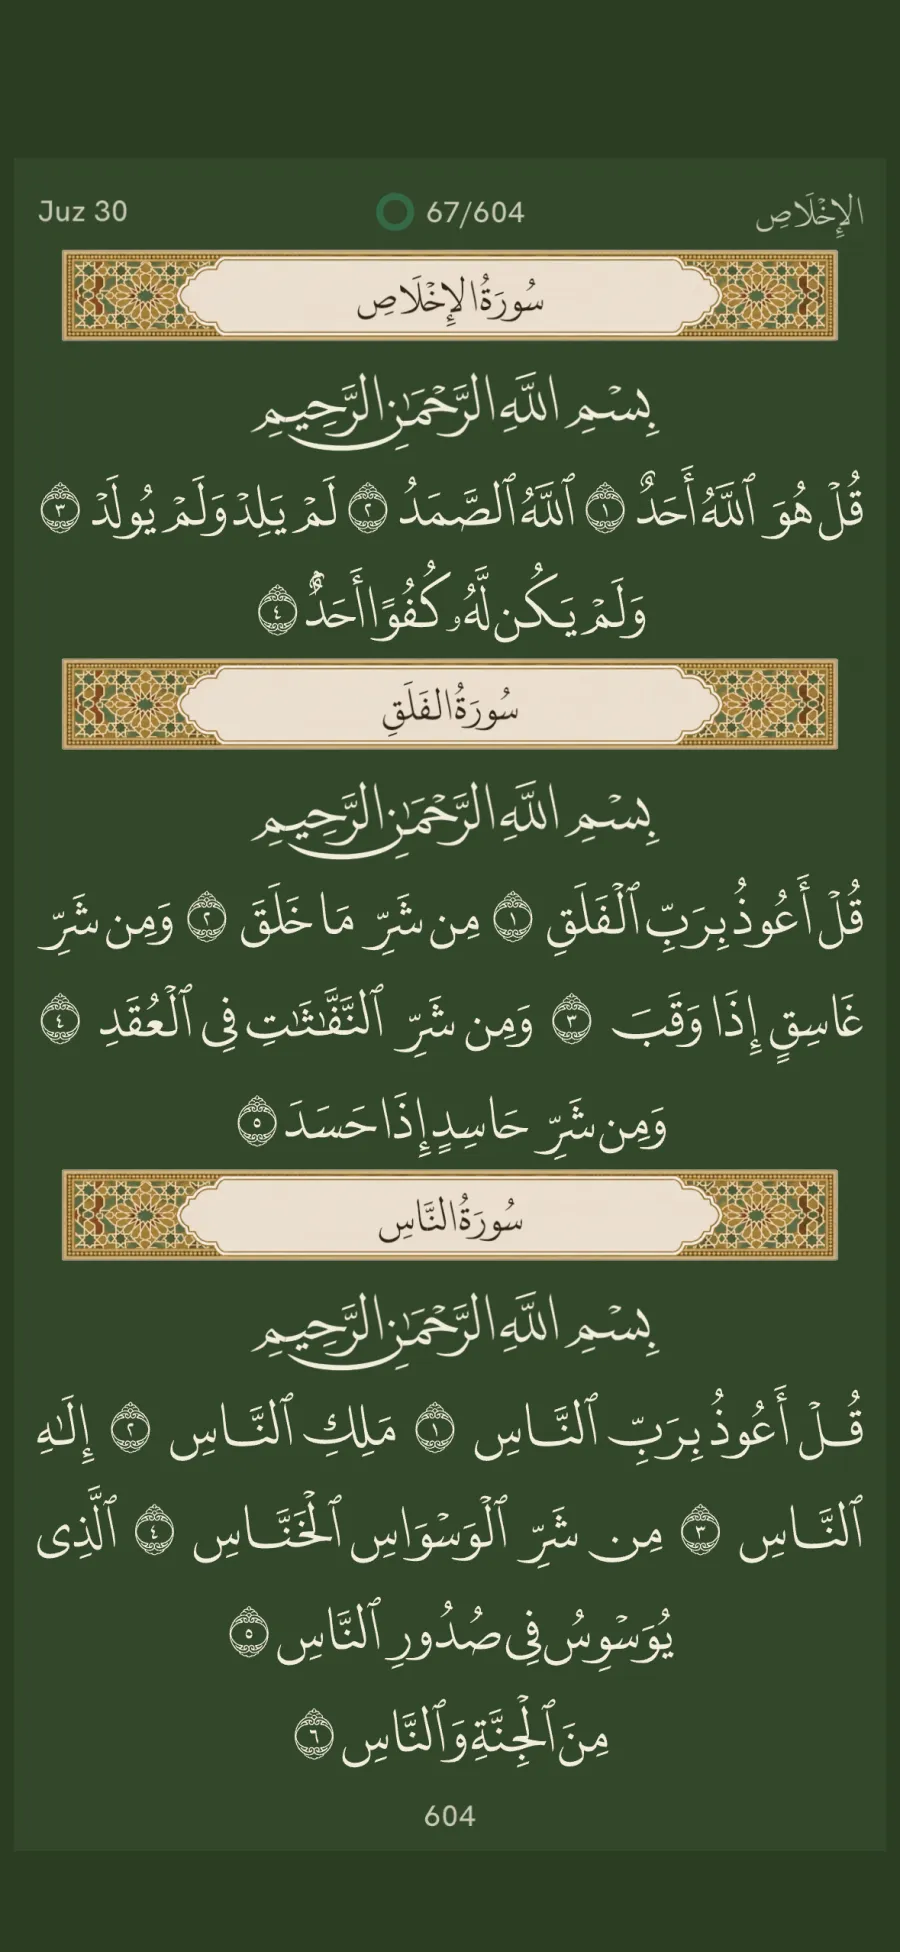 Juz 30
67/604
الإِخْلَاصِ
سُورَةُ الإِخْلَاصِ
بِسْمِ اللَّهِ الرَّحْمَٰنِ الرَّحِيمِ
قُلْ هُوَ ٱللَّهُ أَحَدٌ ١ ٱللَّهُ ٱلصَّمَدُ ٢ لَمْ يَلِدْ وَلَمْ يُولَدْ ٣
وَلَمْ يَكُن لَّهُۥ كُفُوًا أَحَدٌۢ ٤
سُورَةُ الفَلَقِ
بِسْمِ اللَّهِ الرَّحْمَٰنِ الرَّحِيمِ
قُلْ أَعُوذُ بِرَبِّ ٱلْفَلَقِ ١ مِن شَرِّ مَا خَلَقَ ٢ وَمِن شَرِّ
غَاسِقٍ إِذَا وَقَبَ ٣ وَمِن شَرِّ ٱلنَّفَّٰثَٰتِ فِى ٱلْعُقَدِ ٤
وَمِن شَرِّ حَاسِدٍ إِذَا حَسَدَ ٥
سُورَةُ النَّاسِ
بِسْمِ اللَّهِ الرَّحْمَٰنِ الرَّحِيمِ
قُلْ أَعُوذُ بِرَبِّ ٱلنَّاسِ ١ مَلِكِ ٱلنَّاسِ ٢ إِلَٰهِ
ٱلنَّاسِ ٣ مِن شَرِّ ٱلْوَسْوَاسِ ٱلْخَنَّاسِ ٤ ٱلَّذِى
يُوَسْوِسُ فِى صُدُورِ ٱلنَّاسِ ٥
مِنَ ٱلْجِنَّةِ وَٱلنَّاسِ ٦
604